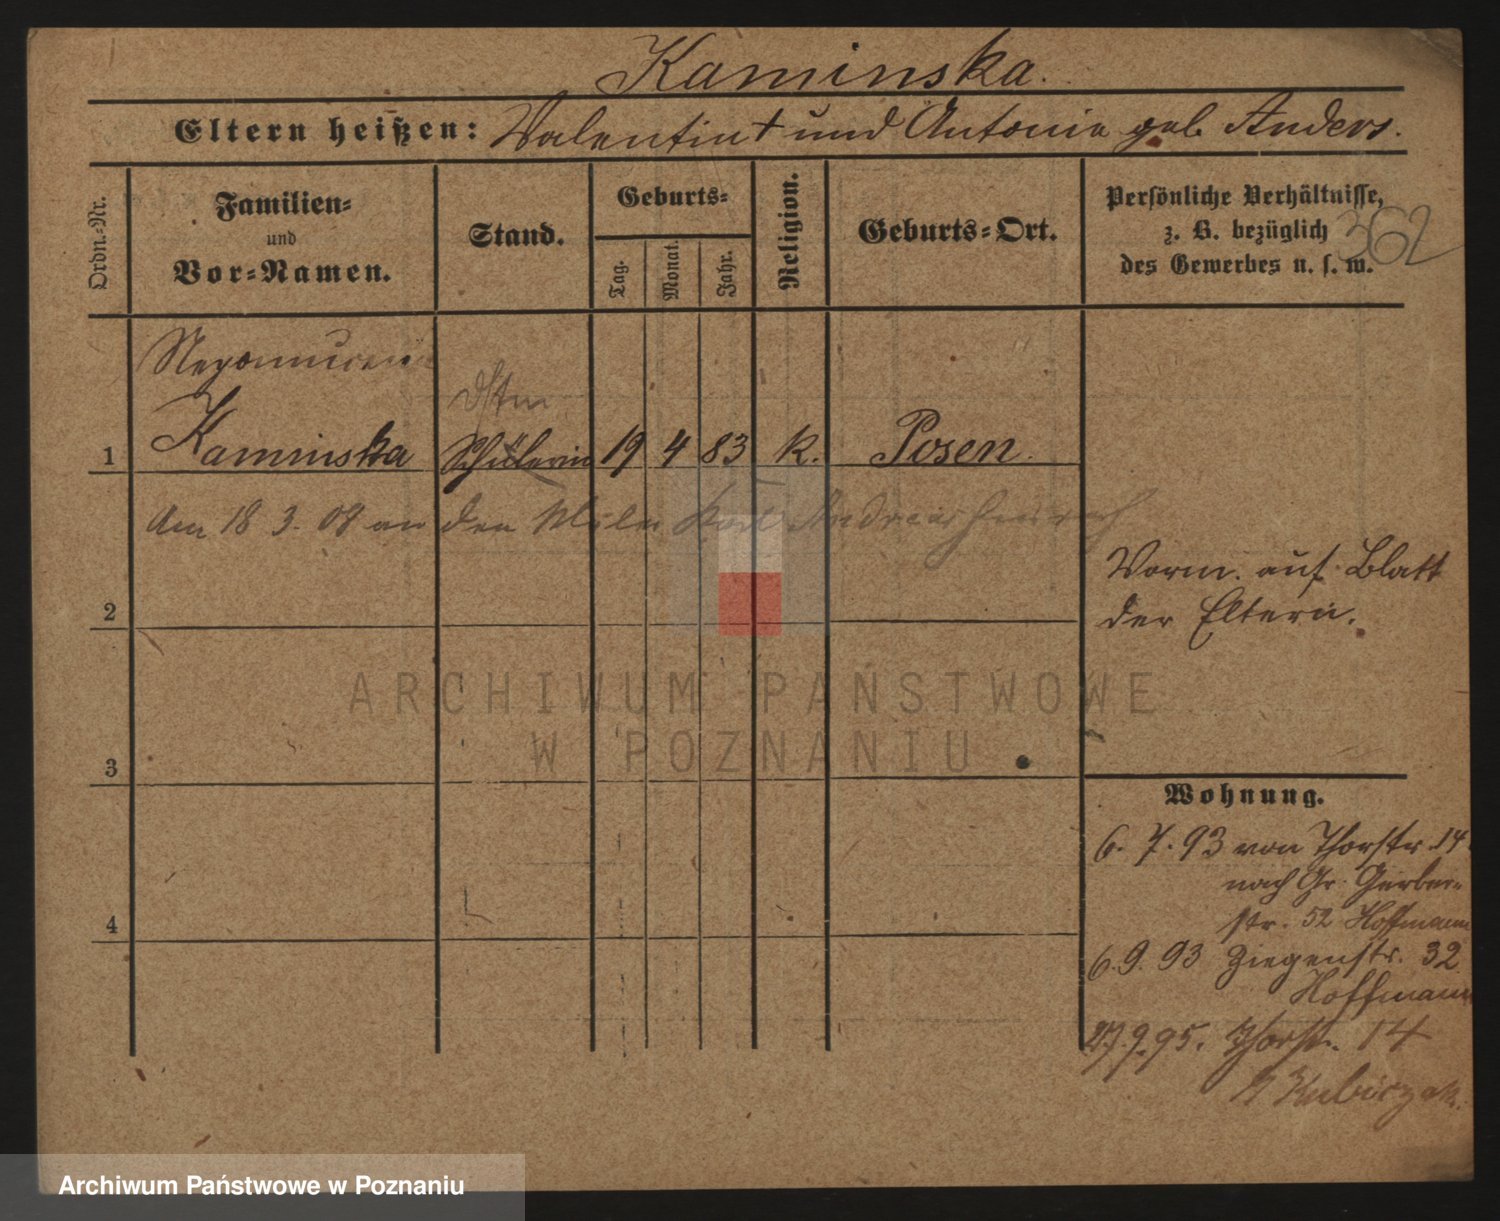 Kaminska.
Eltern heißen: Valentin † und Antonie geb. Anders.
Ordn.-Nr.
Familien- und Vor-Namen.
Stand.
Geburts-
Tag.
Monat.
Jahr.
Religion.
Geburts-Ort.
Persönliche Verhältnisse,
z. B. bezüglich
des Gewerbes u. s. w.
362
Nepomucena
1 Kaminska Schülerin 19 4 83 k. Posen.
Am 18 3. 09 an den Maler Karl Andreas
Vorm. auf Blatt
der Eltern.
2
3
4
Wohnung.
6. 7. 93 von Thorstr. 14
nach Gr. Gerber-
str. 52 Hoffmann
6. 9. 93 Ziegenstr. 32
Hoffmann
27. 9. 95. Thorstr. 14
Kubiczak.
ARCHIWUM PAŃSTWOWE
W POZNANIU
Archiwum Państwowe w Poznaniu